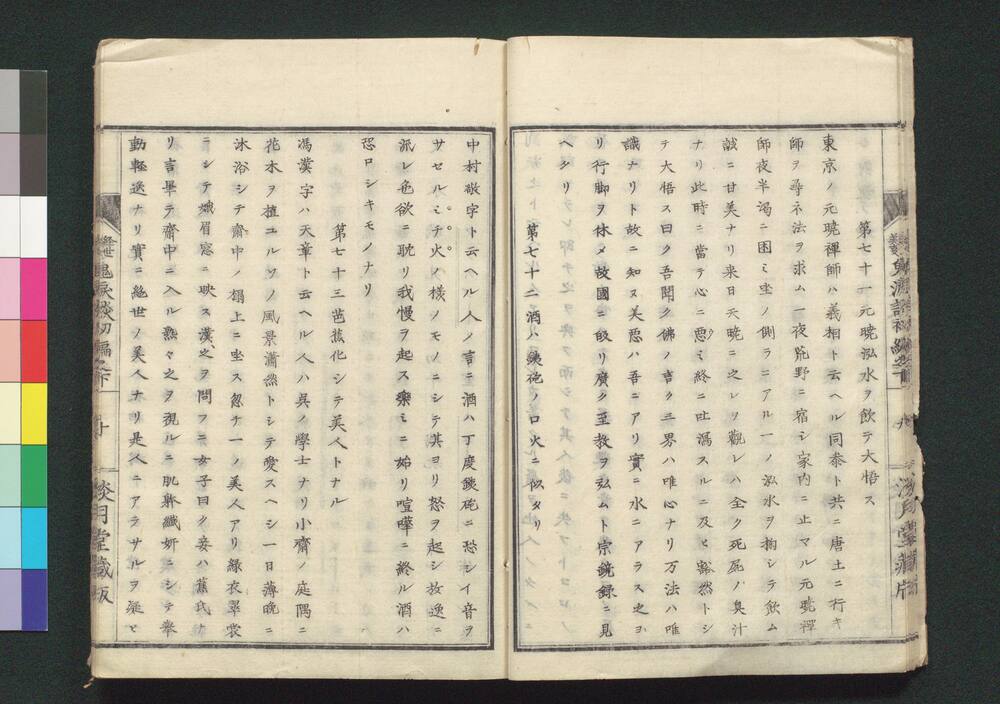 第七十一元曉泓水ヲ飲テ大悟ス
東京ノ元曉禪師ハ義相ト云ヘル同泰ト共ニ唐土ニ行キ
師ヲ尋ネ法ヲ求ム一夜荒野ニ宿シ家内ニ止マル元曉禪
師夜半渇ニ困ミ坐ノ側ラニアル一ノ泓水ヲ掬シテ飲ム
誠ニ甘美ナリ来日天曉ニ之レヲ觀レハ全ク死屍ノ臭汁
ナリ此時ニ當テ心ニ悪ミ終ニ吐瀉スルニ及ヒ豁然トシ
テ大悟ス曰ク吾聞ク佛ノ言ク三界ハ唯心ナリ万法ハ唯
識ナリト故ニ知ヌ美悪ハ吾ニアリ實ニ水ニアラス之ヨ
リ行脚ヲ休メ故國ニ皈リ廣ク至教ヲ弘ムト宗鏡録ニ見
ヘタリ
第七十二酒ハ鐵砲ノ口火ニ似タリ
中村敬字ト云ヘル人ノ言ニ酒ハ丁度鐵砲ニ恐シイ音ヲ
サセルミチ火ノ様ノモノニシテ其ヨリ怒ヲ起シ放逸ニ
派レ色欲ニ耽リ我慢ヲ起ス樂ミニ始リ喧嘩ニ終ル酒ハ
恐ロシキモノナリ
第七十三芭蕉化シテ美人トナル
馮漢字ハ天章ト云ヘル人ハ呉ノ學士ナリ小齋ノ庭隅ニ
花木ヲ植ユルソノ風景瀟然トシテ愛スヘシ一日薄晩ニ
沐浴シテ齋中ノ榻上ニ坐ス忽チ一ノ美人アリ緑衣翠裳
ニシテ娥眉窓ニ映ス漢之ヲ問フニ女子曰ク妾ハ蕉氏ナ
リ言畢テ齋中ニ入ル熟々之ヲ視ルニ肌躰纖妍ニシテ擧
動軽逸ナリ實ニ絶世ノ美人ナリ是人ニアラサルヲ疑ヒ
鬼涙談初編之下
十
淡月堂藏版